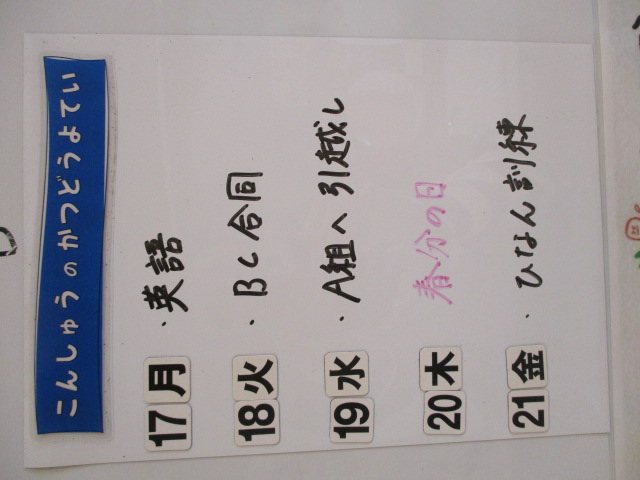 こんしゅうのかつどうよてい
17 月 ・英語
18 火 ・BC合同
19 水 ・A組へ引越し
20 木 春分の日
21 金 ・ひなん訓練